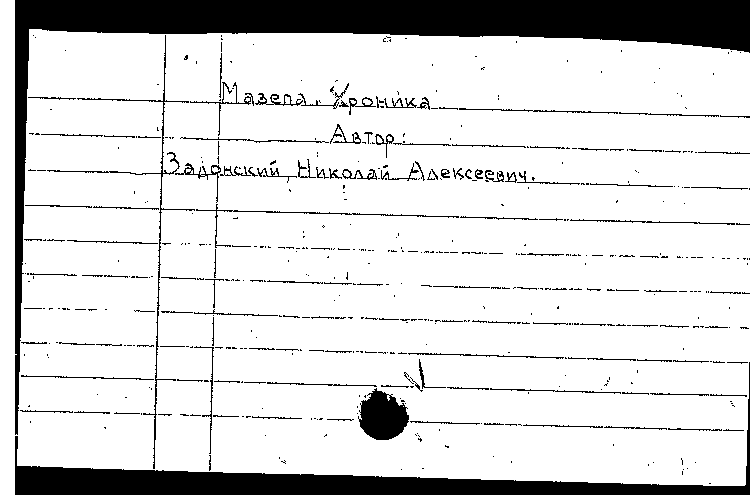 Мазепа. Хроника
Автор:
Задонский, Николай Алексеевич.